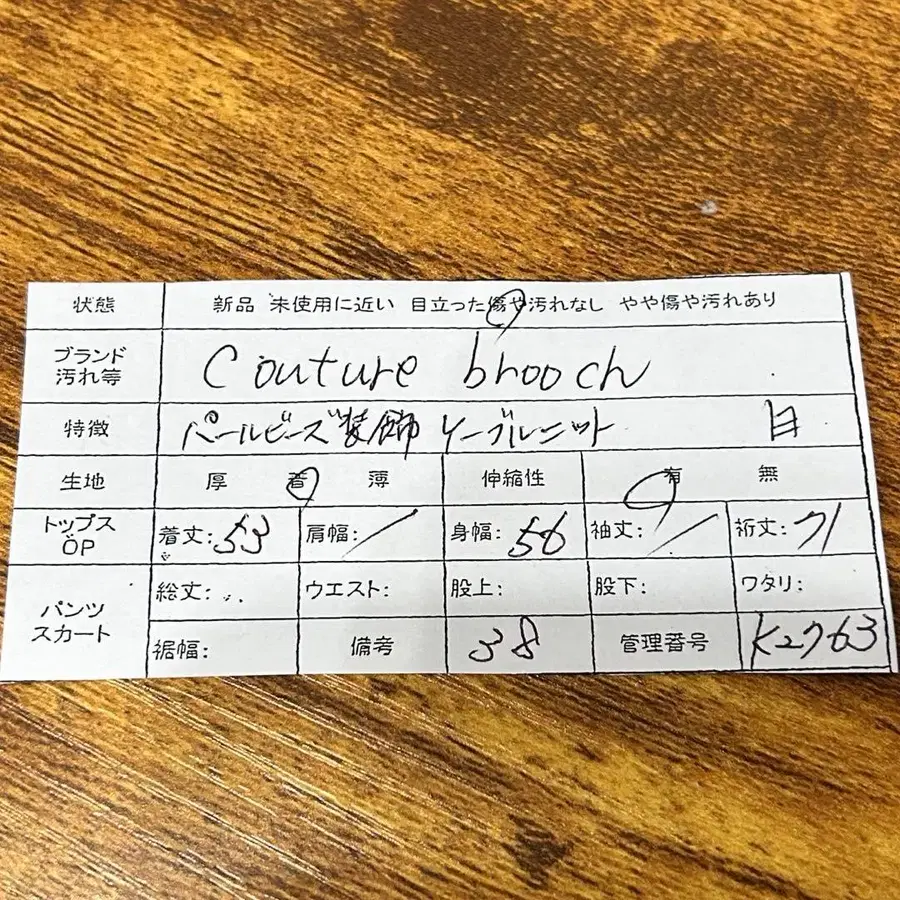 状態 新品 未使用に近い 目立った傷や汚れなし やや傷や汚れあり
ブランド
汚れ等 Couture brooch
特徴 パールビーズ装飾 ケーブルニット
生地 厚 普 薄 伸縮性 有 無
トップス
OP 着丈:53 肩幅:/ 身幅:56 袖丈:/ 裄丈:71
パンツ
スカート 総丈: ウエスト: 股上: 股下: ワタリ:
裾幅: 備考 38 管理番号 K2763